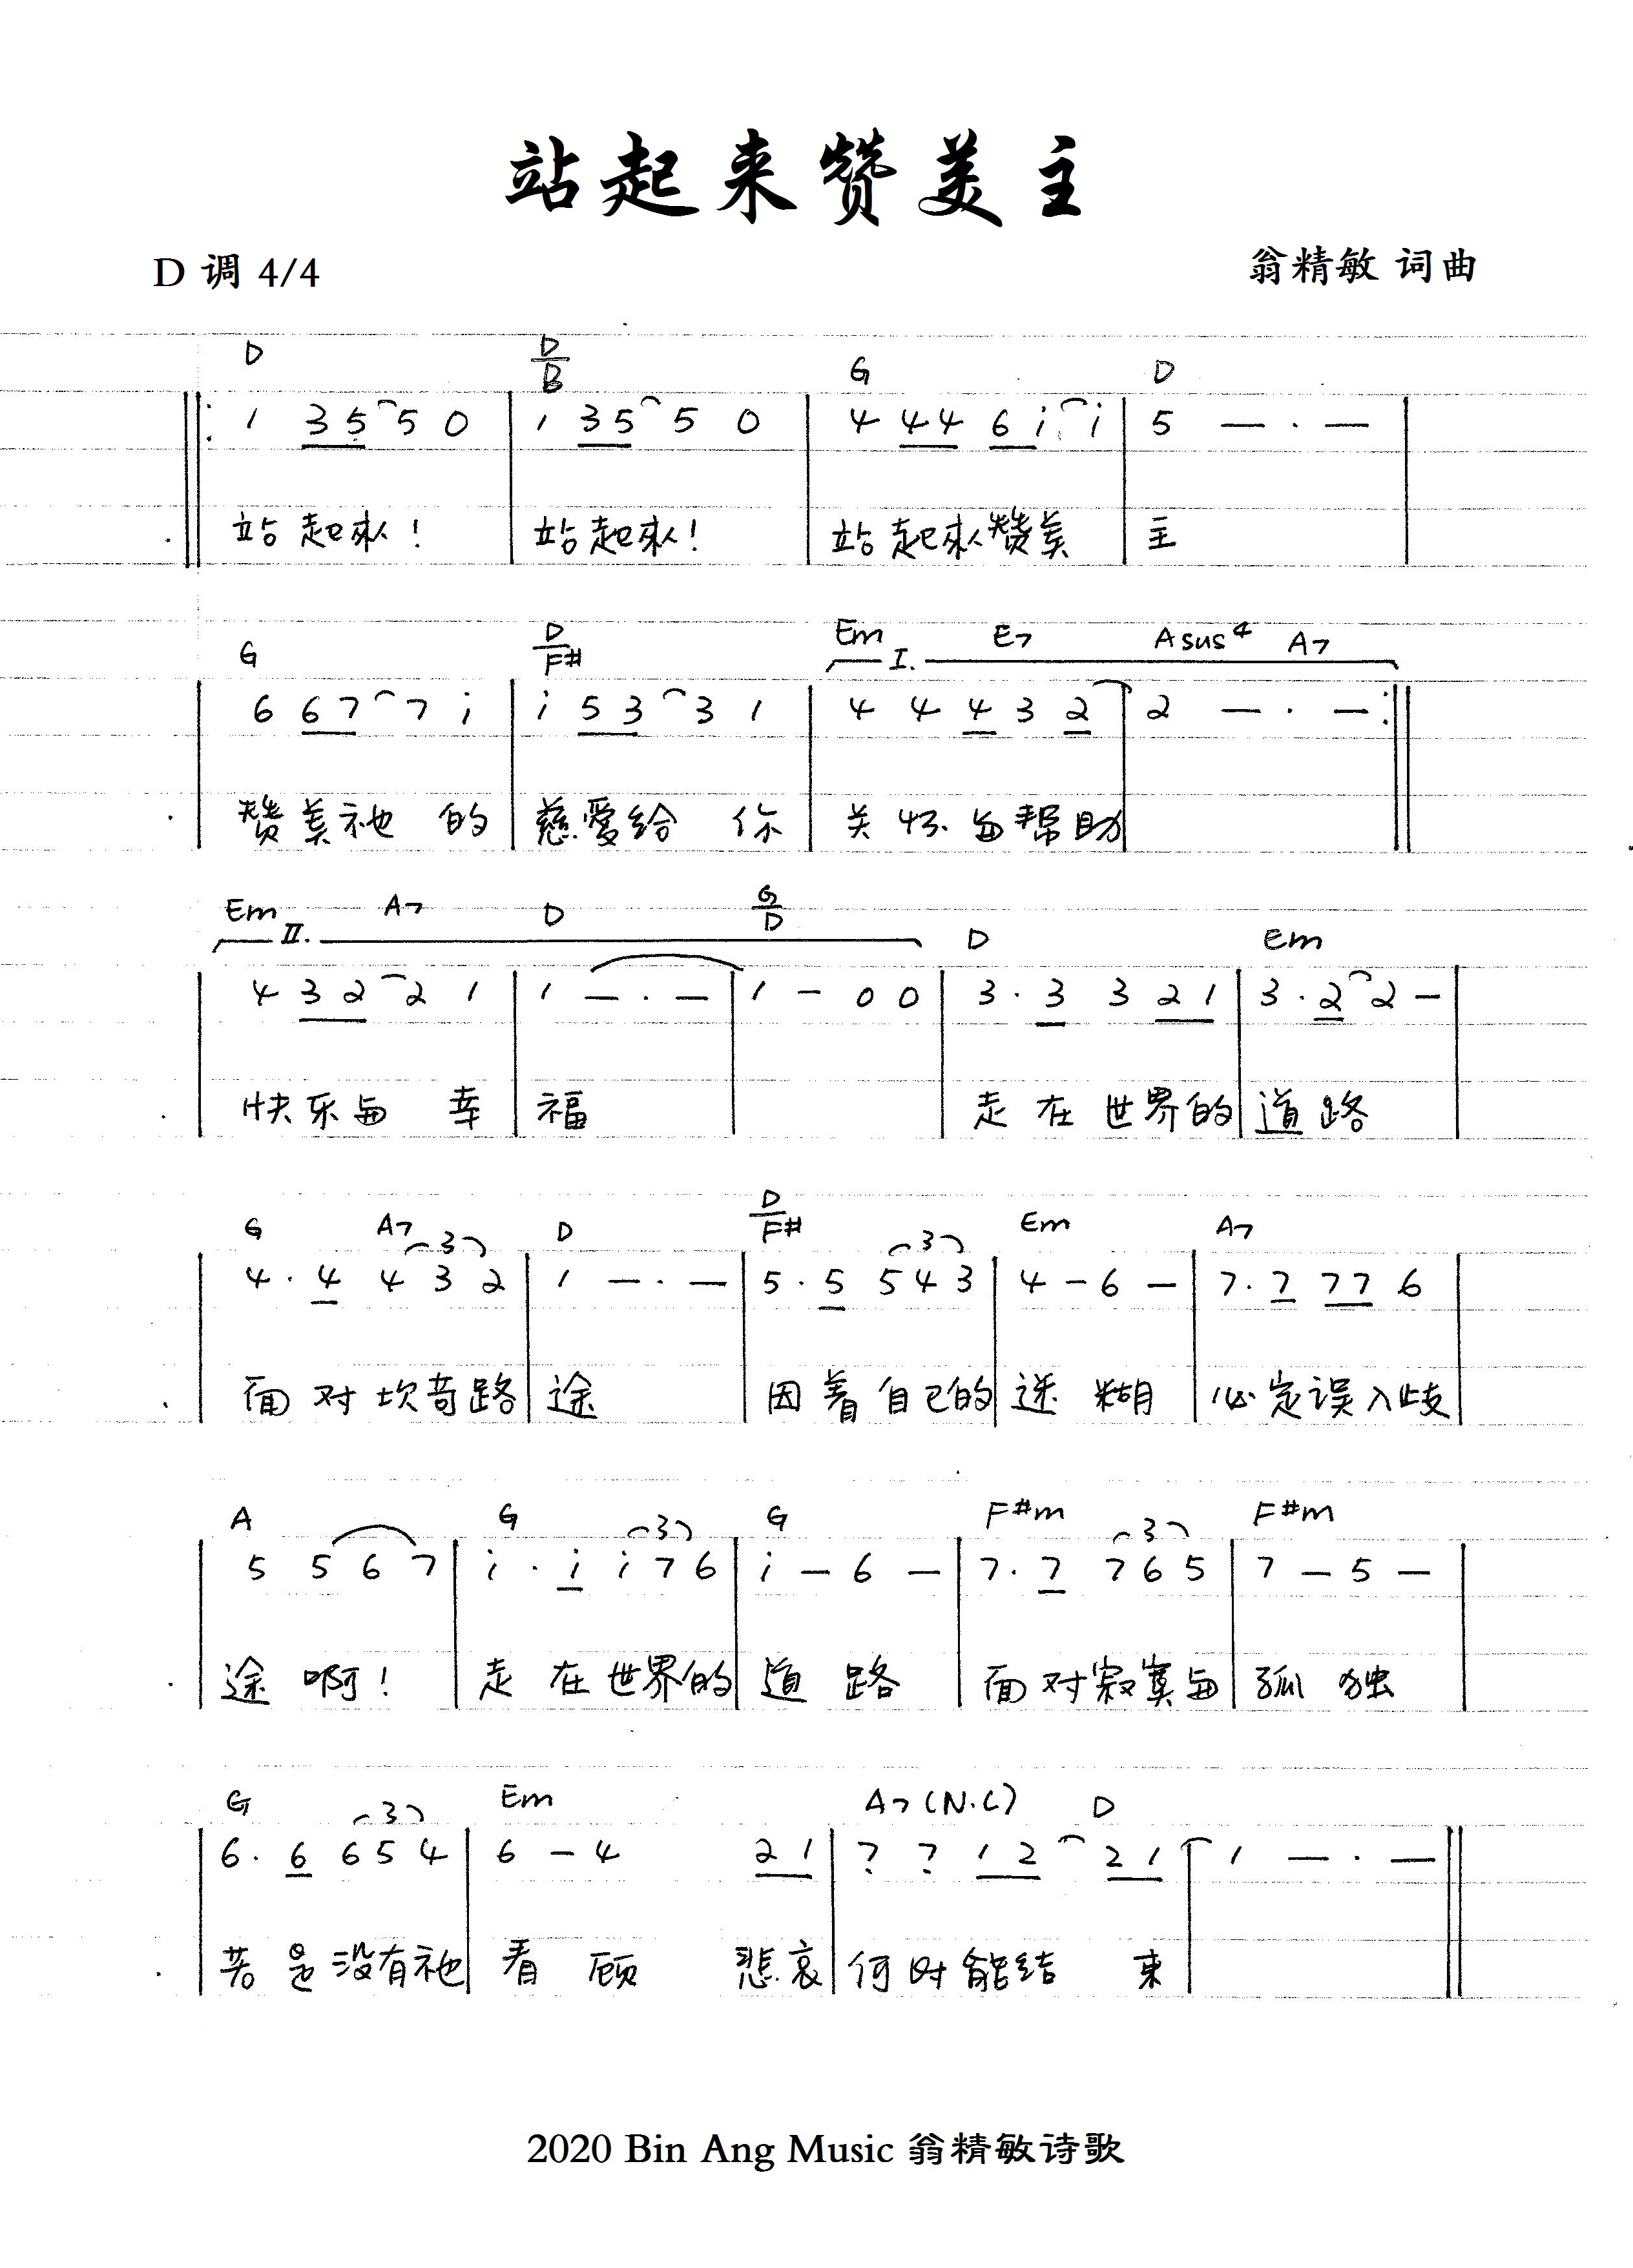 站起来赞美主
D 调 4/4 翁精敏 词曲
D D/B G D
1 3 5 5 0 | 1 3 5 5 0 | 4 4 4 6 i i | 5 — · — |
站起来! 站起来! 站起来赞美 主
G D/F# Em I. E7 Asus4 A7
6 6 7 7 i | i 5 3 3 1 | 4 4 4 3 2 | 2 — · — :||
赞美祂 的 慈爱给 你 关怀与帮助
Em II. A7 D G/D D Em
4 3 2 2 1 | 1 — · — | 1 — 0 0 | 3 · 3 3 2 1 | 3 · 2 2 — |
快乐与 幸 福 走在世界的 道路
G A7 3 D D/F# 3 Em A7
4 · 4 4 3 2 | 1 — · — | 5 · 5 5 4 3 | 4 — 6 — | 7 · 7 7 7 6 |
面对坎苛路 途 因着自己的 迷糊 必定误入歧
A G 3 G F#m 3 F#m
5 5 6 7 | i · i i 7 6 | i — 6 — | 7 · 7 7 6 5 | 7 — 5 — |
途啊! 走在世界的 道路 面对寂寞与 孤独
G 3 Em A7 (N.C) D
6 · 6 6 5 4 | 6 — 4 2 1 | 7 7 1 2 2 1 | 1 — · — ||
若是没有祂 看顾 悲哀 何时能结 束
2020 Bin Ang Music 翁精敏诗歌